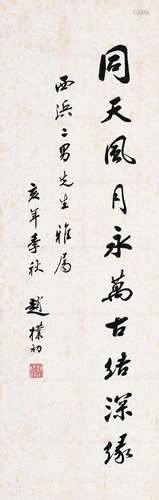 同天風月永萬古結深緣
西浜二男先生雅屬
亥年季秋 趙樸初